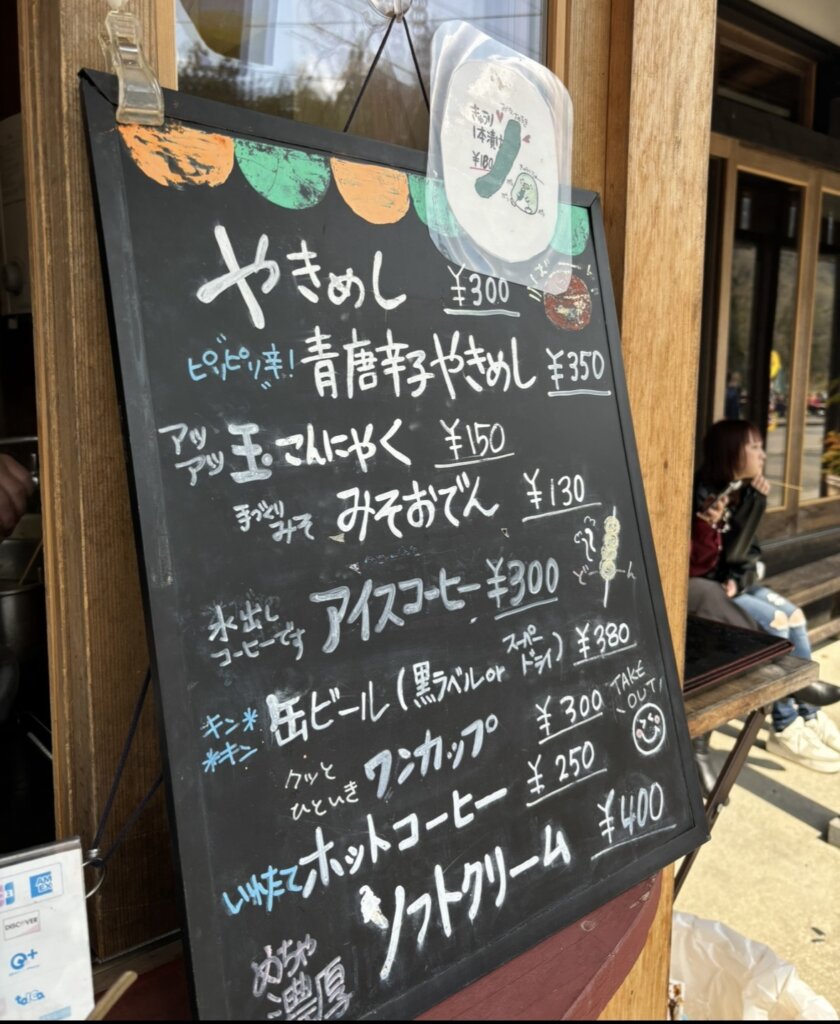 きゅうり
1本漬け
¥180
やきめし ¥300
ピリピリ辛! 青唐辛子やきめし ¥350
アツアツ 玉こんにゃく ¥150
手づくりみそ みそおでん ¥130
どーん
水出しコーヒーです アイスコーヒー ¥300
キンキン 缶ビール(黒ラベル or スーパードライ) ¥380
TAKE OUT!
クッとひといき ワンカップ ¥300
いれたて ホットコーヒー ¥250
めちゃ濃厚 ソフトクリーム ¥400
AMEX
DISCOVER